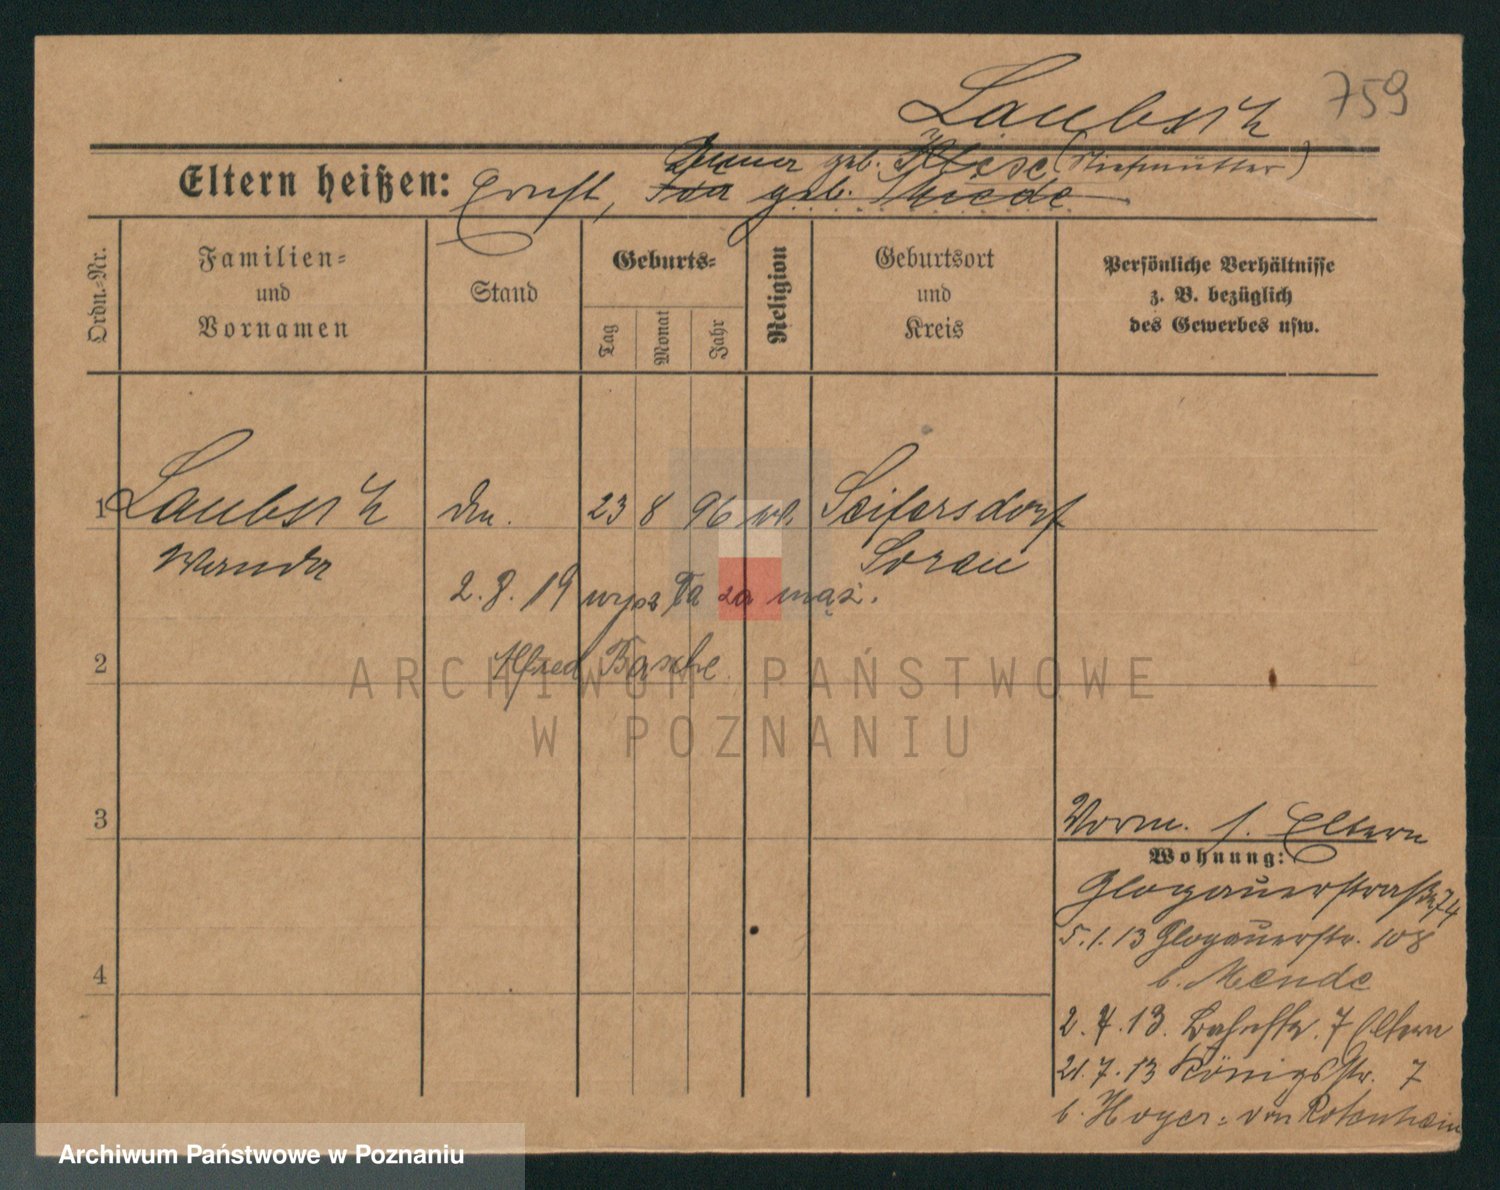 759
Laubsch
Anna geb. Klose (Stiefmutter)
Eltern heißen: Ernst, Ida geb. Thiede
Ordn.-Nr.
Familien=
und
Vornamen
Stand
Geburts=
Tag
Monat
Jahr
Religion
Geburtsort
und
Kreis
Persönliche Verhältnisse
z. B. bezüglich
des Gewerbes usw.
1 Laubsch 23 8 96 Seifersdorf
Wanda Sorau
2. 8. 19 wysz Ta za mąż.
2 Alfred
ARCHIWUM PAŃSTWOWE
W POZNANIU
3
Vorm. s. Eltern
Wohnung:
Glogauerstraße 74
4
5.1.13 Glogauerstr. 108
b. Mende
2.7.13. Bahnstr. 7 Eltern
21.7.13 Königstr. 7
b. Hoyer = von Rotenhein
Archiwum Państwowe w Poznaniu